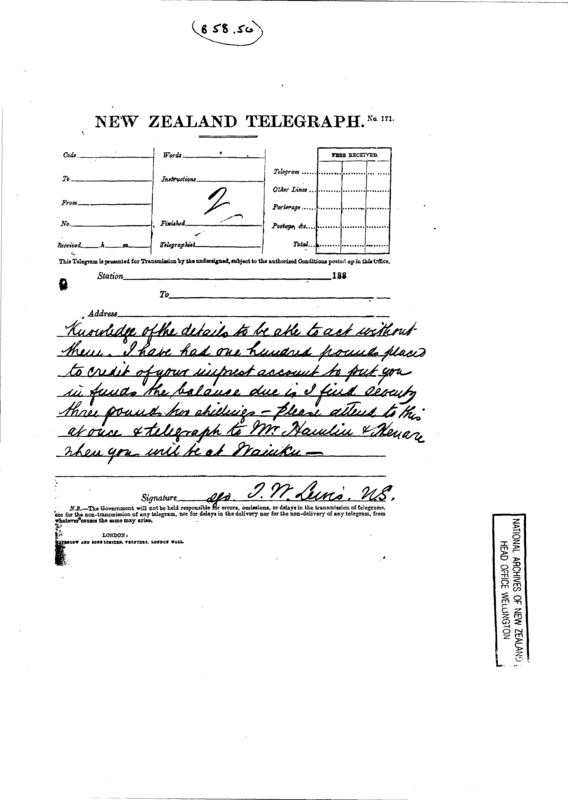 (B 58.50)
NEW ZEALAND TELEGRAPH. No. 171.
Code
Words
FEES RECEIVED.
To
Instructions
Telegram
Other Lines
From
2
Porterage
No.
Finished
Postage, &c.
Received h m
Telegraphist
Total
This Telegram is presented for Transmission by the undersigned, subject to the authorized Conditions posted up in this Office.
Station 188
To
Address
Knowledge of the details to be able to act without
them. I have had one hundred pounds placed
to credit of your imprest account to put you
in funds the balance due is I find seventy
three pounds two shillings – please attend to this
at once & telegraph to Mr Hamlin & Henare
when you will be at Waiuku —
Signature sgd. T. W. Lewis. U.S.
N.B.—The Government will not be held responsible for errors, omissions, or delays in the transmission of telegrams,
nor for the non-transmission of any telegram, nor for delays in the delivery nor for the non-delivery of any telegram, from
whatever causes the same may arise.
LONDON:
WATERLOW AND SONS LIMITED, PRINTERS, LONDON WALL.
NATIONAL ARCHIVES OF NEW ZEALAND
HEAD OFFICE WELLINGTON